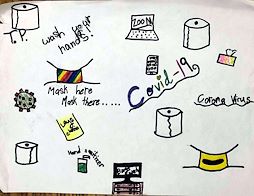 T.P.
wash your
hands!
ZOOM
Covid-19
Mask here
Mask there.....
Corona Virus
Hand sanitizer